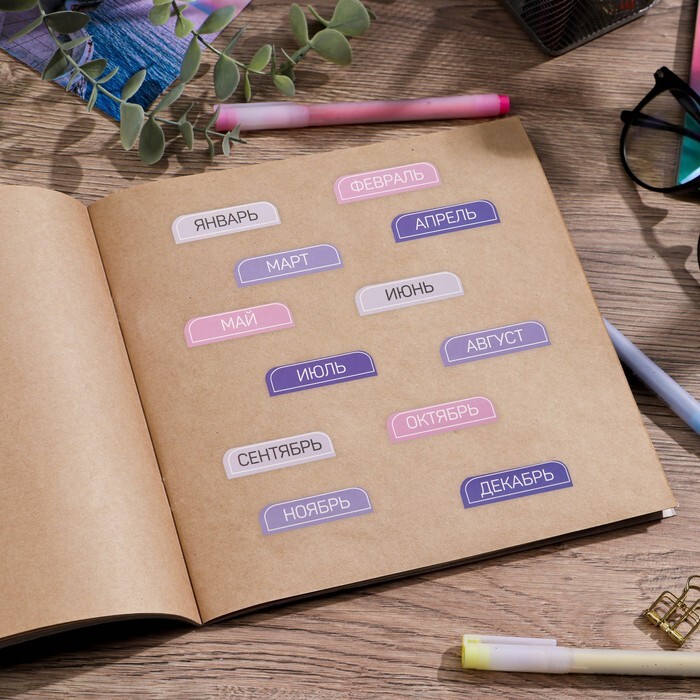 ЯНВАРЬ
ФЕВРАЛЬ
МАРТ
АПРЕЛЬ
МАЙ
ИЮНЬ
ИЮЛЬ
АВГУСТ
СЕНТЯБРЬ
ОКТЯБРЬ
НОЯБРЬ
ДЕКАБРЬ